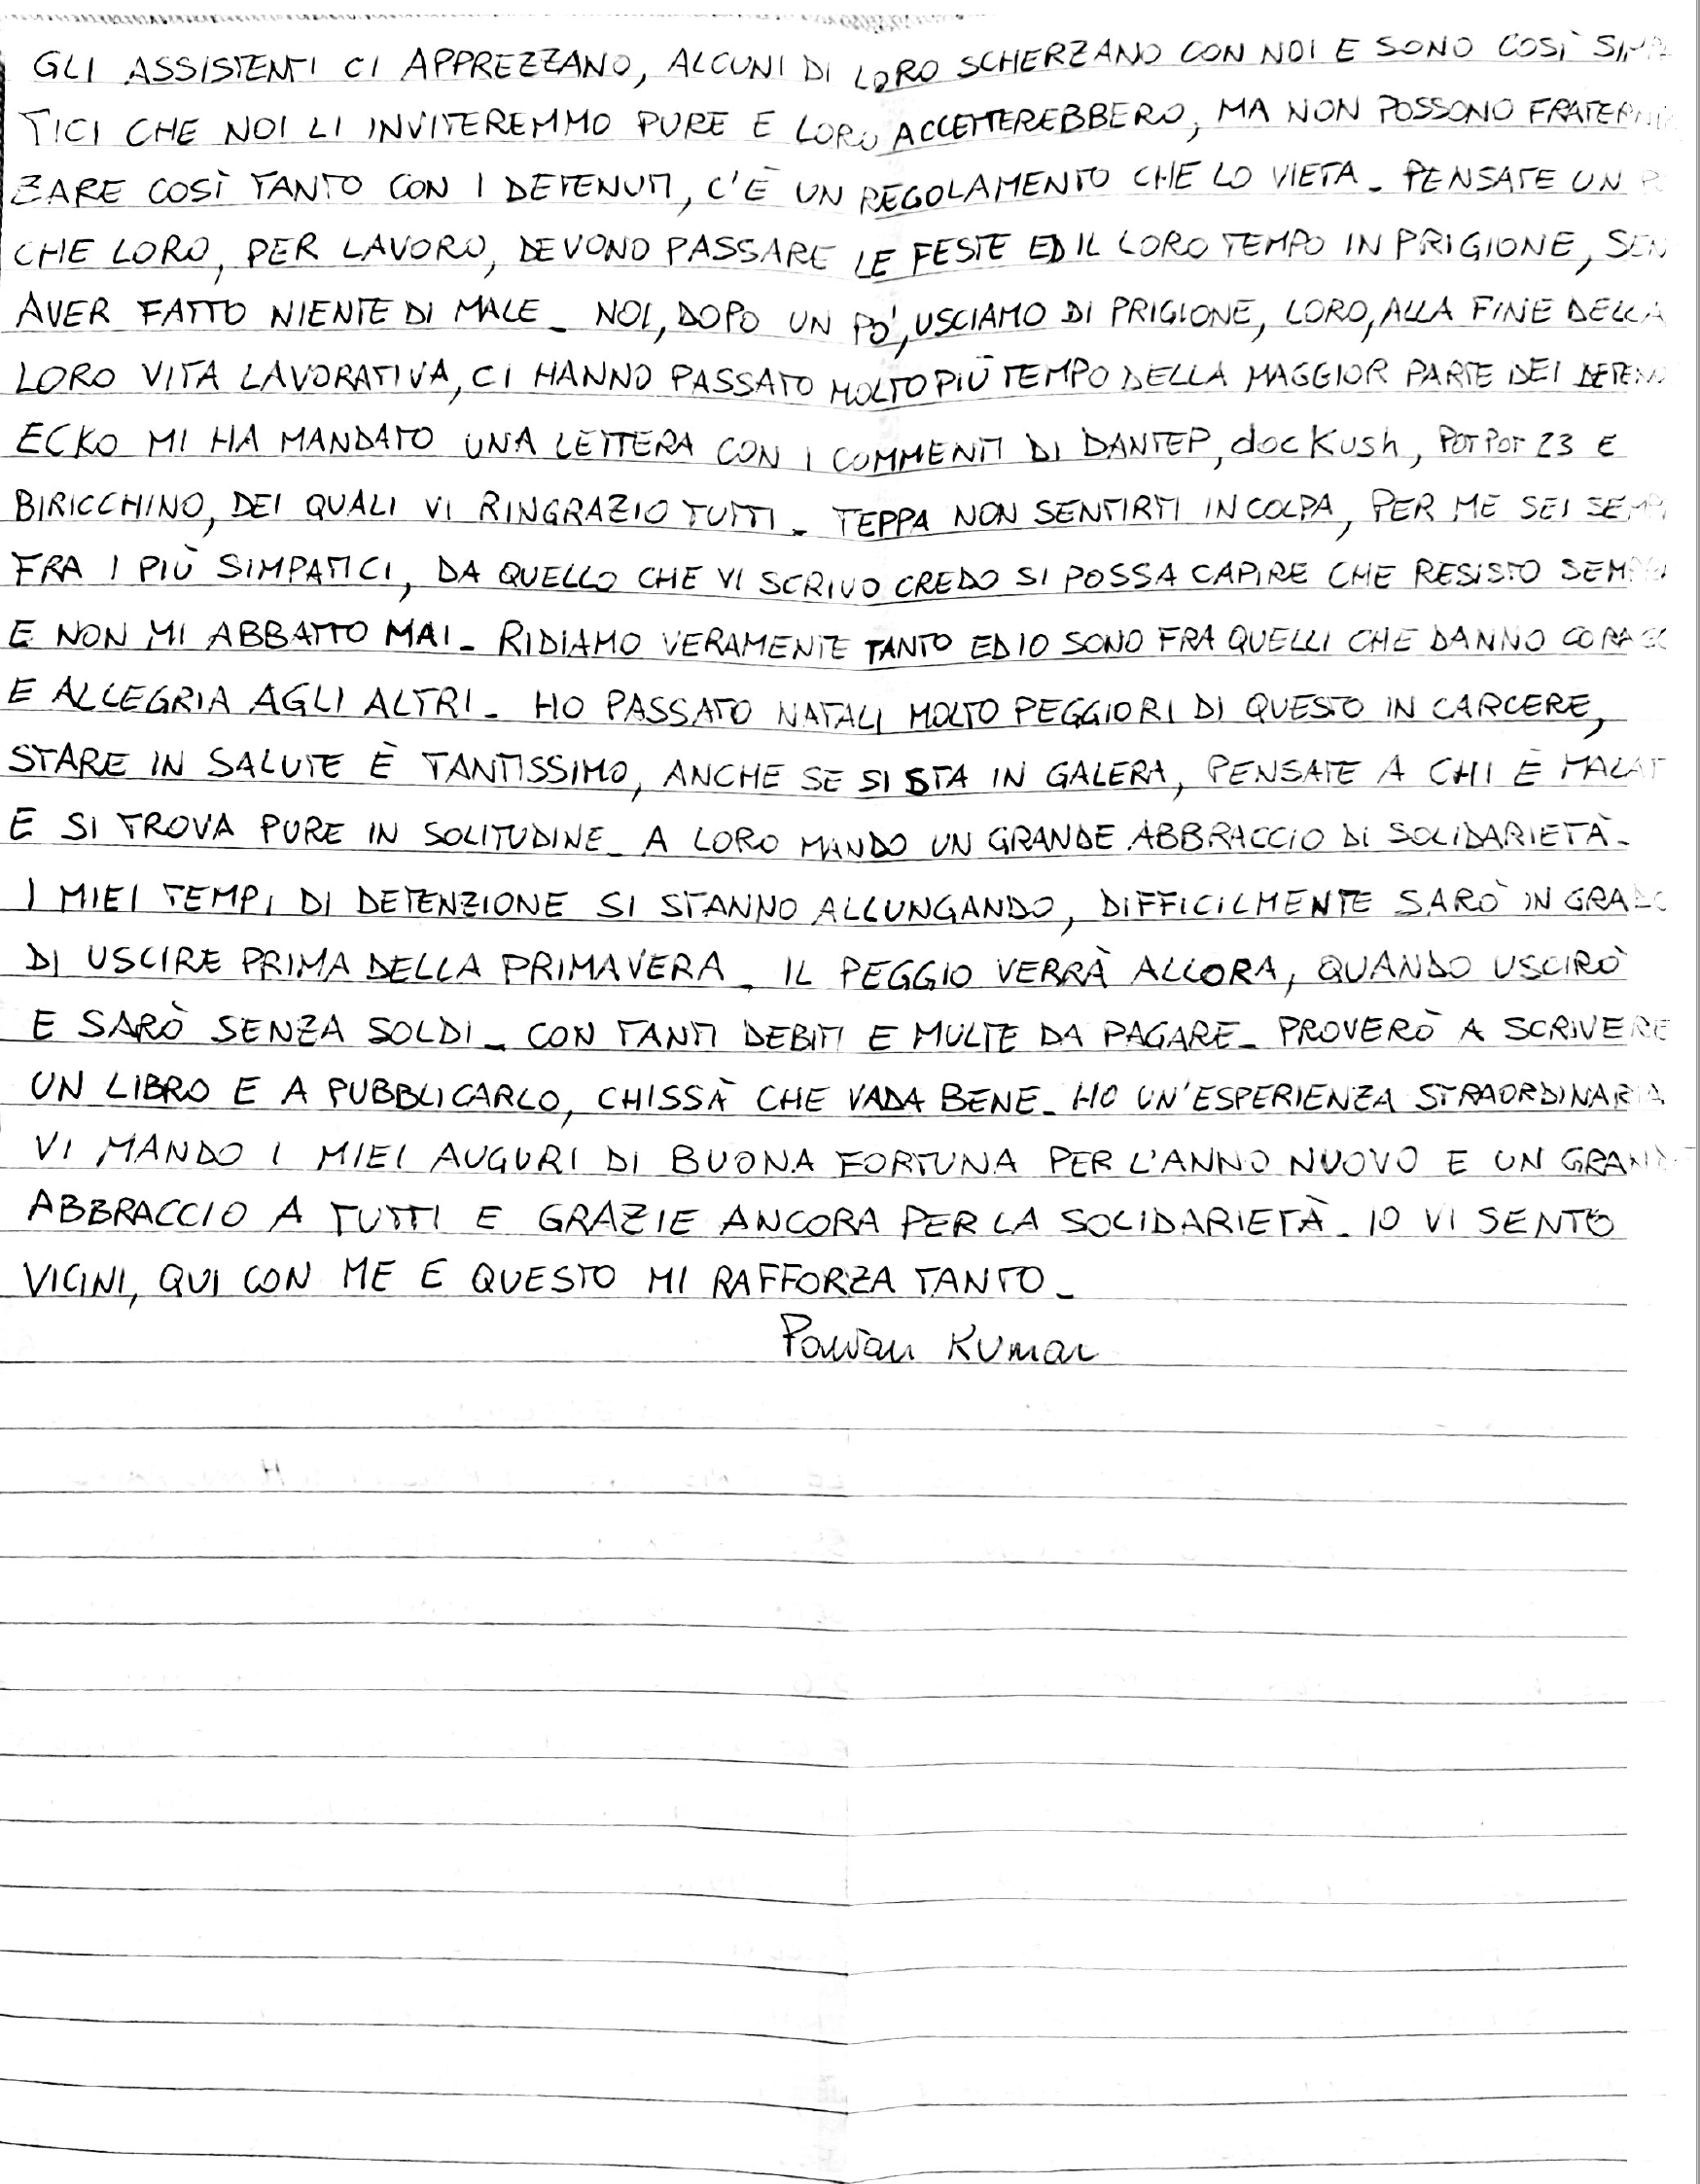 GLI ASSISTENTI CI APPREZZANO, ALCUNI DI LORO SCHERZANO CON NOI E SONO COSÌ SIMPA
TICI CHE NOI LI INVITEREMMO PURE E LORO ACCETTEREBBERO, MA NON POSSONO FRATERNIZ
ZARE COSÌ TANTO CON I DETENUTI, C'È UN REGOLAMENTO CHE LO VIETA_ PENSATE UN
CHE LORO, PER LAVORO, DEVONO PASSARE LE FESTE ED IL LORO TEMPO IN PRIGIONE, SEN
AVER FATTO NIENTE DI MALE_ NOI, DOPO UN PO', USCIAMO DI PRIGIONE, LORO, ALLA FINE DELLA
LORO VITA LAVORATIVA, CI HANNO PASSATO MOLTO PIÙ TEMPO DELLA MAGGIOR PARTE DEI DETENU
ECKO MI HA MANDATO UNA LETTERA CON I COMMENTI DI DANTEP, docKush, POTPOT 23 E
BIRICCHINO, DEI QUALI VI RINGRAZIO TUTTI_ TEPPA NON SENTIRTI IN COLPA, PER ME SEI SEMP
FRA I PIÙ SIMPATICI, DA QUELLO CHE VI SCRIVO CREDO SI POSSA CAPIRE CHE RESISTO SEMP
E NON MI ABBATTO MAI_ RIDIAMO VERAMENTE TANTO ED IO SONO FRA QUELLI CHE DANNO CORAGG
E ALLEGRIA AGLI ALTRI_ HO PASSATO NATALI MOLTO PEGGIORI DI QUESTO IN CARCERE,
STARE IN SALUTE È TANTISSIMO, ANCHE SE SI STA IN GALERA, PENSATE A CHI È MALAT
E SI TROVA PURE IN SOLITUDINE_ A LORO MANDO UN GRANDE ABBRACCIO DI SOLIDARIETÀ_
I MIEI TEMPI DI DETENZIONE SI STANNO ALLUNGANDO, DIFFICILMENTE SARÒ IN GRADO
DI USCIRE PRIMA DELLA PRIMAVERA_ IL PEGGIO VERRÀ ALLORA, QUANDO USCIRÒ
E SARÒ SENZA SOLDI_ CON TANTI DEBITI E MULTE DA PAGARE_ PROVERÒ A SCRIVERE
UN LIBRO E A PUBBLICARLO, CHISSÀ CHE VADA BENE_ HO UN'ESPERIENZA STRAORDINARIA
VI MANDO I MIEI AUGURI DI BUONA FORTUNA PER L'ANNO NUOVO E UN GRAND
ABBRACCIO A TUTTI E GRAZIE ANCORA PER LA SOLIDARIETÀ_ IO VI SENTO
VICINI, QUI CON ME E QUESTO MI RAFFORZA TANTO_
Pawan Kumar